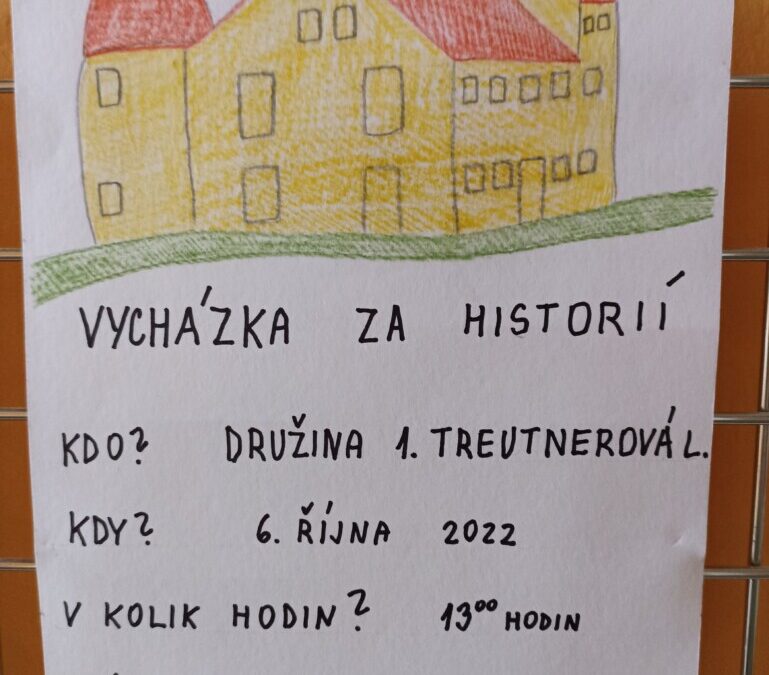 VYCHÁZKA ZA HISTORIÍ
KDO? DRUŽINA 1. TREUTNEROVÁ L.
KDY? 6. ŘÍJNA 2022
V KOLIK HODIN? 13⁰⁰ HODIN